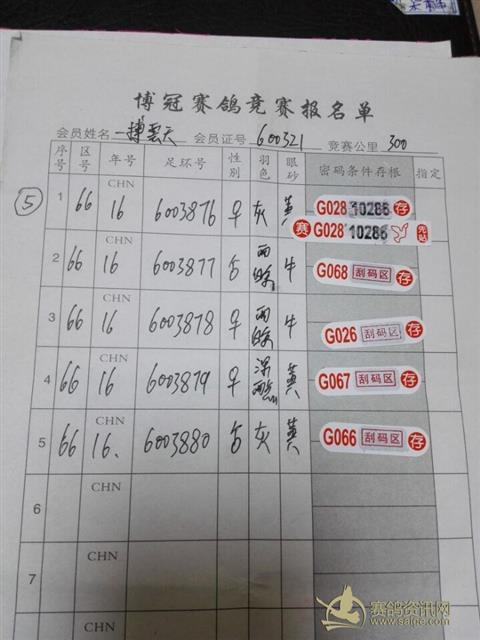 博冠赛鸽竞赛报名单
会员姓名 一搏云天 会员证号 600321 竞赛公里 300
序号 区号 年号 足环号 性别 羽色 眼砂 密码条件存根 指定
⑤ 1 66 CHN 16 6003876 ♀ 灰 黄 G028 10286 存
赛 G028 10286
2 66 CHN 16 6003877 ♂ 雨 牛 G068 刮码区 存
3 66 CHN 16 6003878 ♀ 雨 牛 G026 刮码区 存
4 66 CHN 16 6003879 ♀ 深雨 黄 G067 刮码区 存
5 66 CHN 16. 6003880 ♂ 灰 黄 G066 刮码区 存
6 CHN
7 CHN
CHN
赛鸽资讯网
www.saige.com